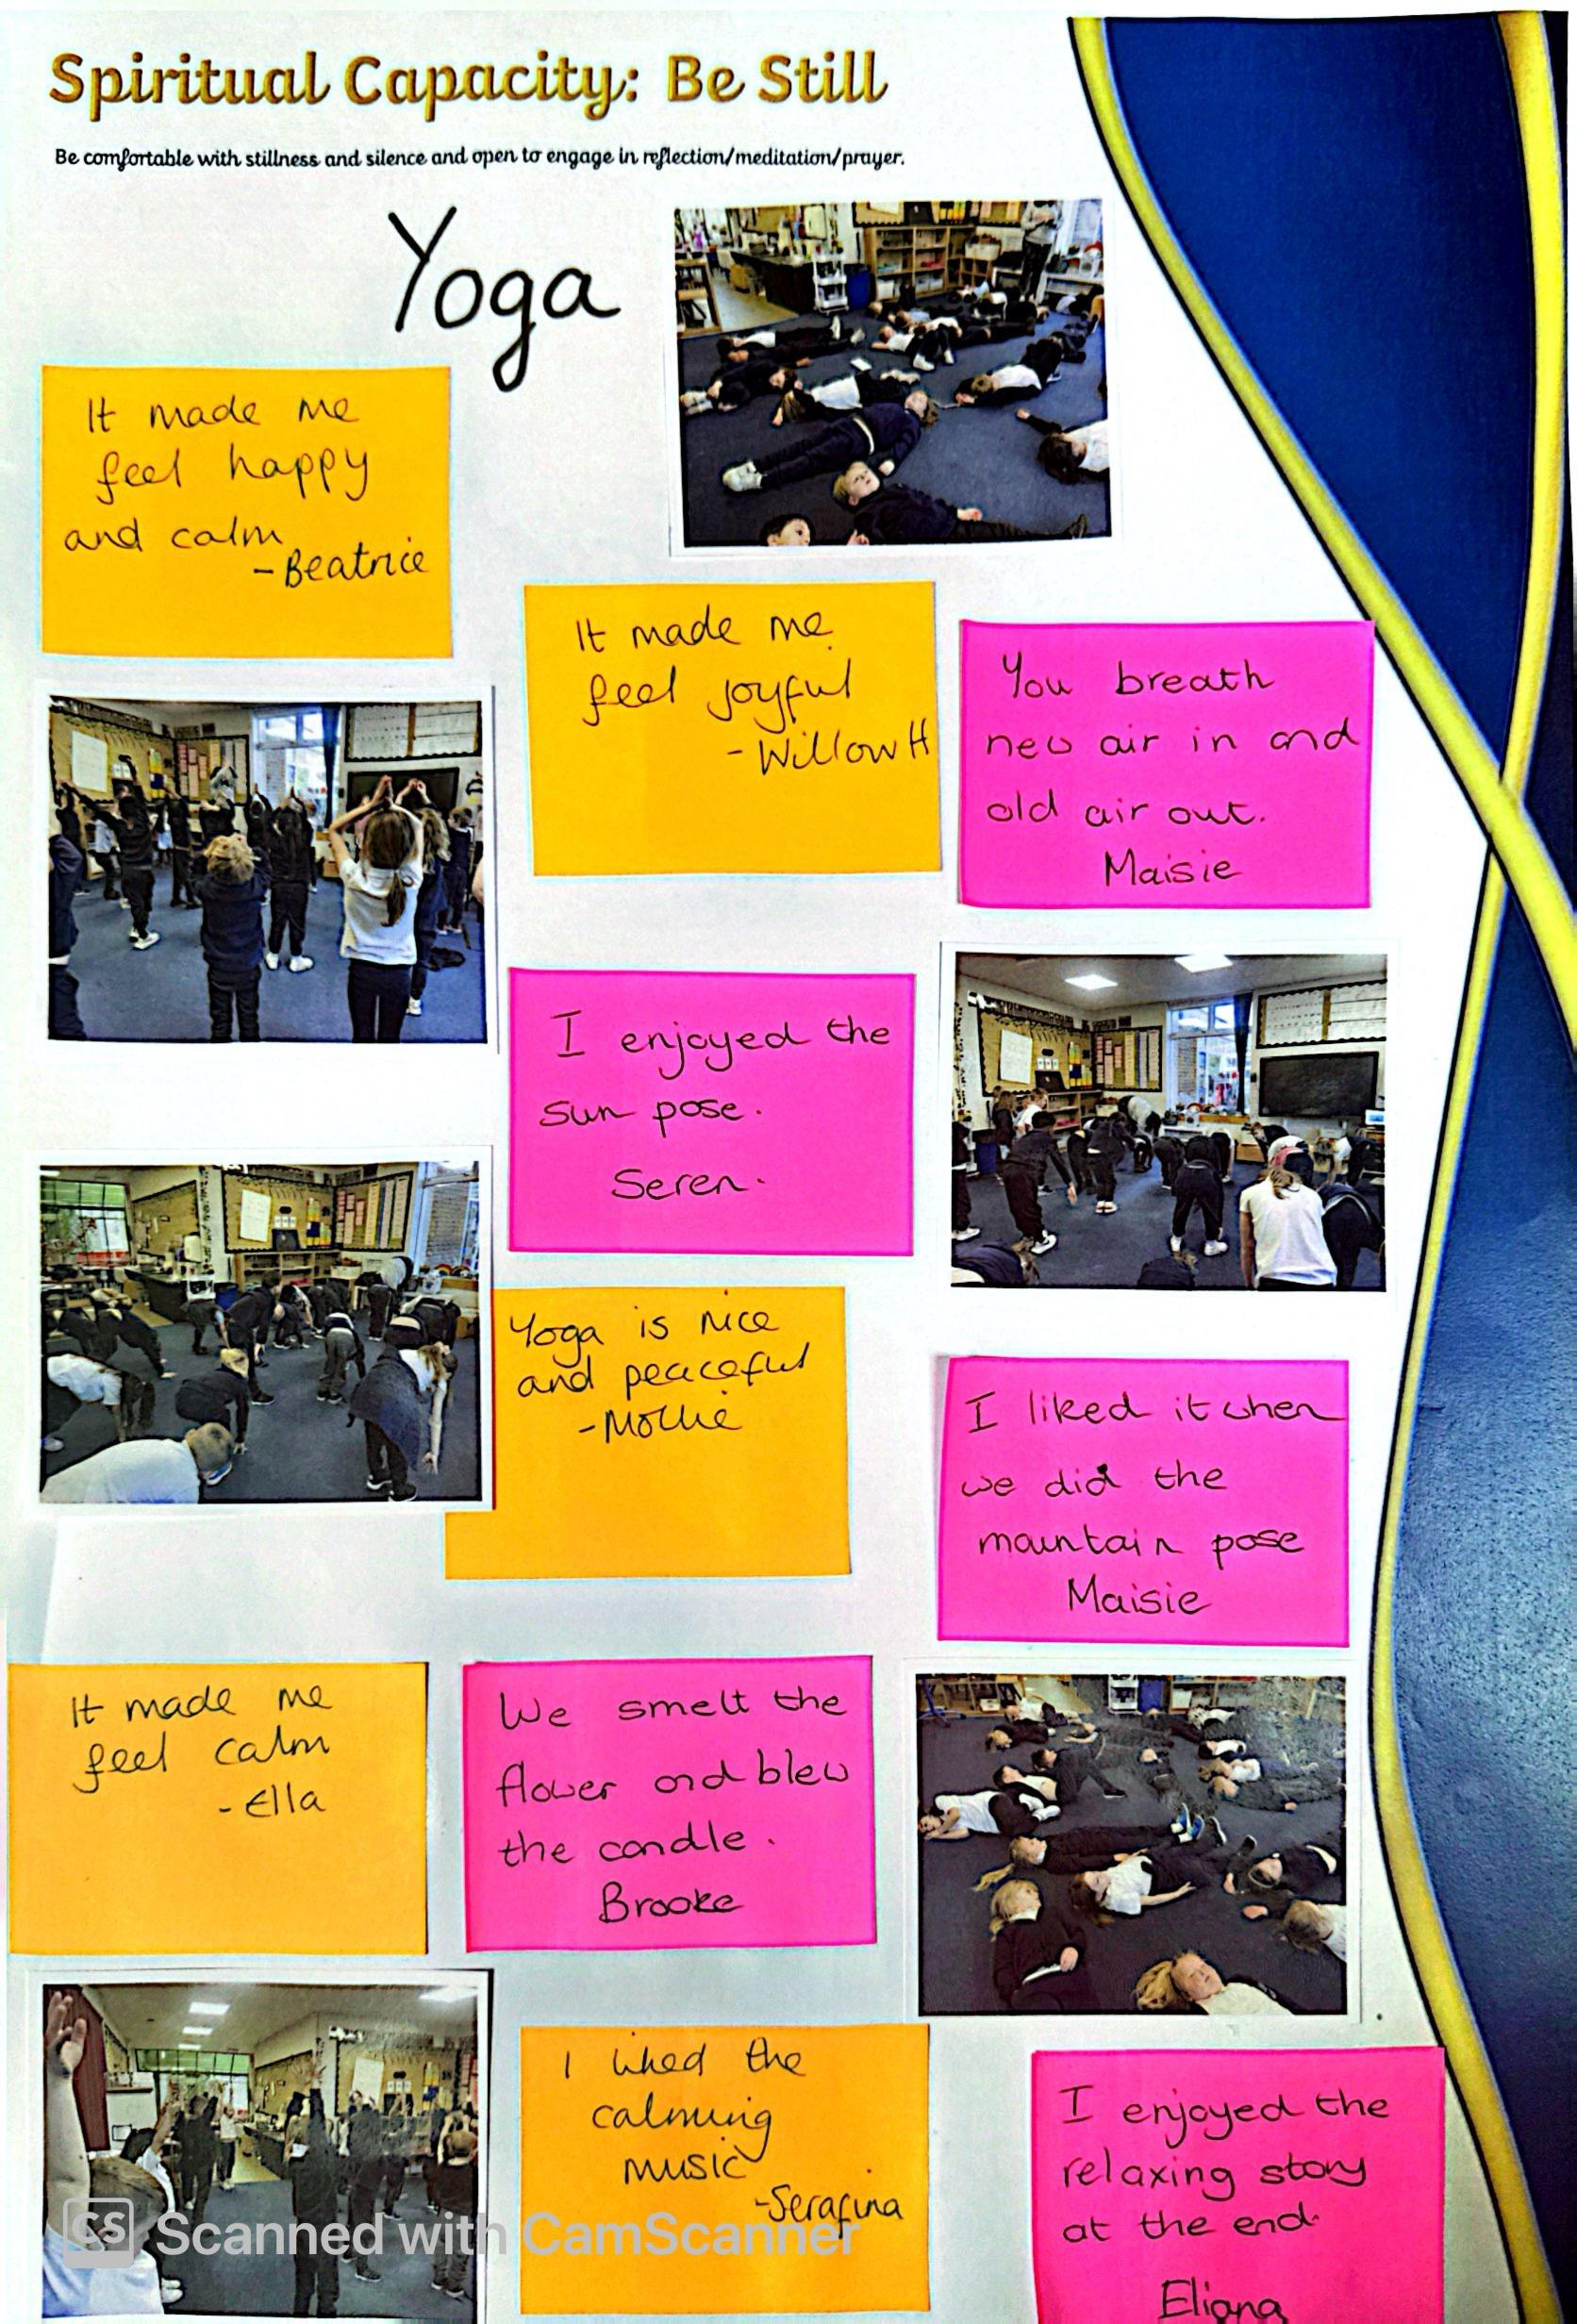 Spiritual Capacity: Be Still
Be comfortable with stillness and silence and open to engage in reflection/meditation/prayer.
Yoga
It made me
feel happy
and calm
-Beatrice
It made me
feel joyful
-Willow H
You breath
new air in and
old air out.
Maisie
I enjoyed the
sun pose.
Seren.
Yoga is nice
and peaceful
-Mollie
I liked it when
we did the
mountain pose
Maisie
It made me
feel calm
-Ella
We smelt the
flower and blew
the candle.
Brooke
I liked the
calming
music
-Serafina
I enjoyed the
relaxing story
at the end.
Eliana
CS Scanned with CamScanner